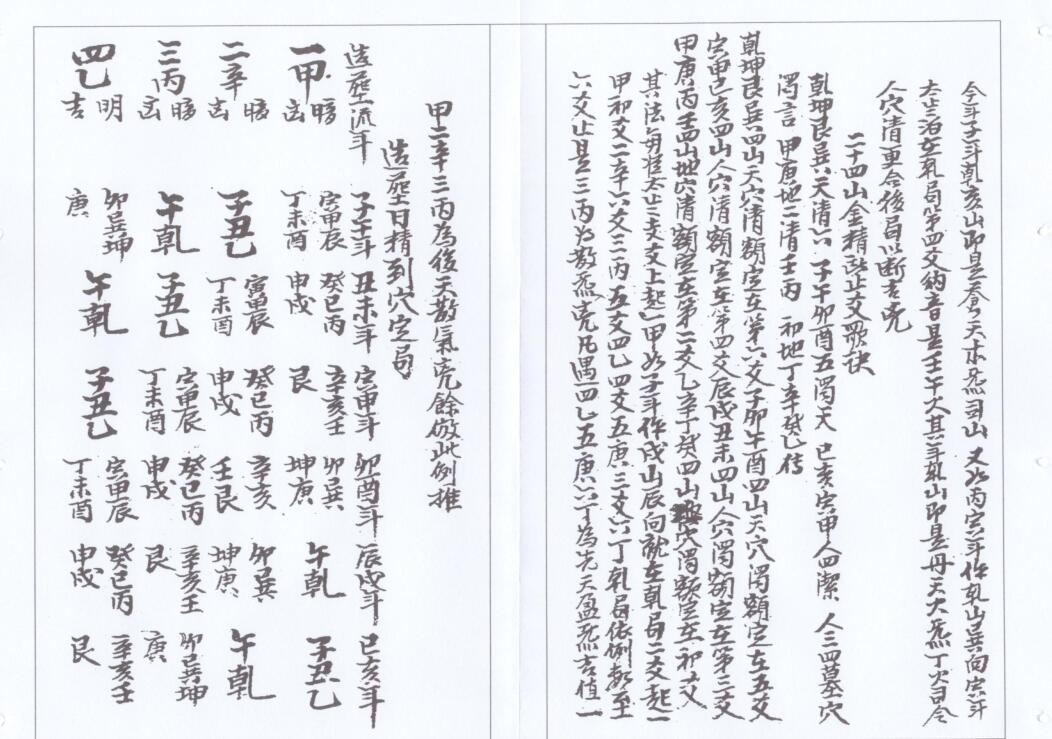 今年子年乾亥山即是蒼天木炁司山又如丙寅年作乾山巽向寅年
太歲泊在乾局第四爻納音是壬午火其年乾山即是丹天火炁丁火司令
人穴清更合後局以斷吉凶
二十四山金精照止爻歌訣
乾坤艮巽六天清六子午卯酉五濁天已亥寅申人四潔人三四墓穴
濁言甲庚地二清壬丙初地丁辛癸乙传
乾坤艮巽四山天穴清額定在第六爻子卯午酉四山天穴濁額定在五爻
寅申已亥四山人穴清額定在第四爻辰戌丑未四山人穴濁額定在第三爻
甲庚丙壬四山地穴清額定在第二爻乙辛丁癸四山地穴濁額定在初爻
其法每在太歲支爻上起甲如子年作戌山辰向就在乾局二爻起一
甲初爻二辛六爻三丙五爻四乙四爻五庚三爻六丁乾局依例數至
六爻止是三丙為散炁凶凡遇四乙五庚六丁為先天盈炁吉值一
甲二辛三丙為後天散氣凶餘倣此例推
造葬日精到穴定局
造葬流年 子午年 丑未年 寅申年 卯酉年 辰戌年 已亥年
一甲 暗凶 寅甲辰丁未酉 癸已丙申戌 辛亥壬艮 卯巽坤庚 午乾 子丑乙
二辛 暗凶 子丑乙 寅甲辰丁未酉 癸已丙申戌 辛亥壬艮 卯巽坤庚 午乾
三丙 暗凶 午乾 子丑乙 寅甲辰丁未酉 癸已丙申戌 辛亥壬艮 卯巽坤庚
四乙 明吉 卯巽坤庚 午乾 子丑乙 寅甲辰丁未酉 癸已丙申戌 辛亥壬艮